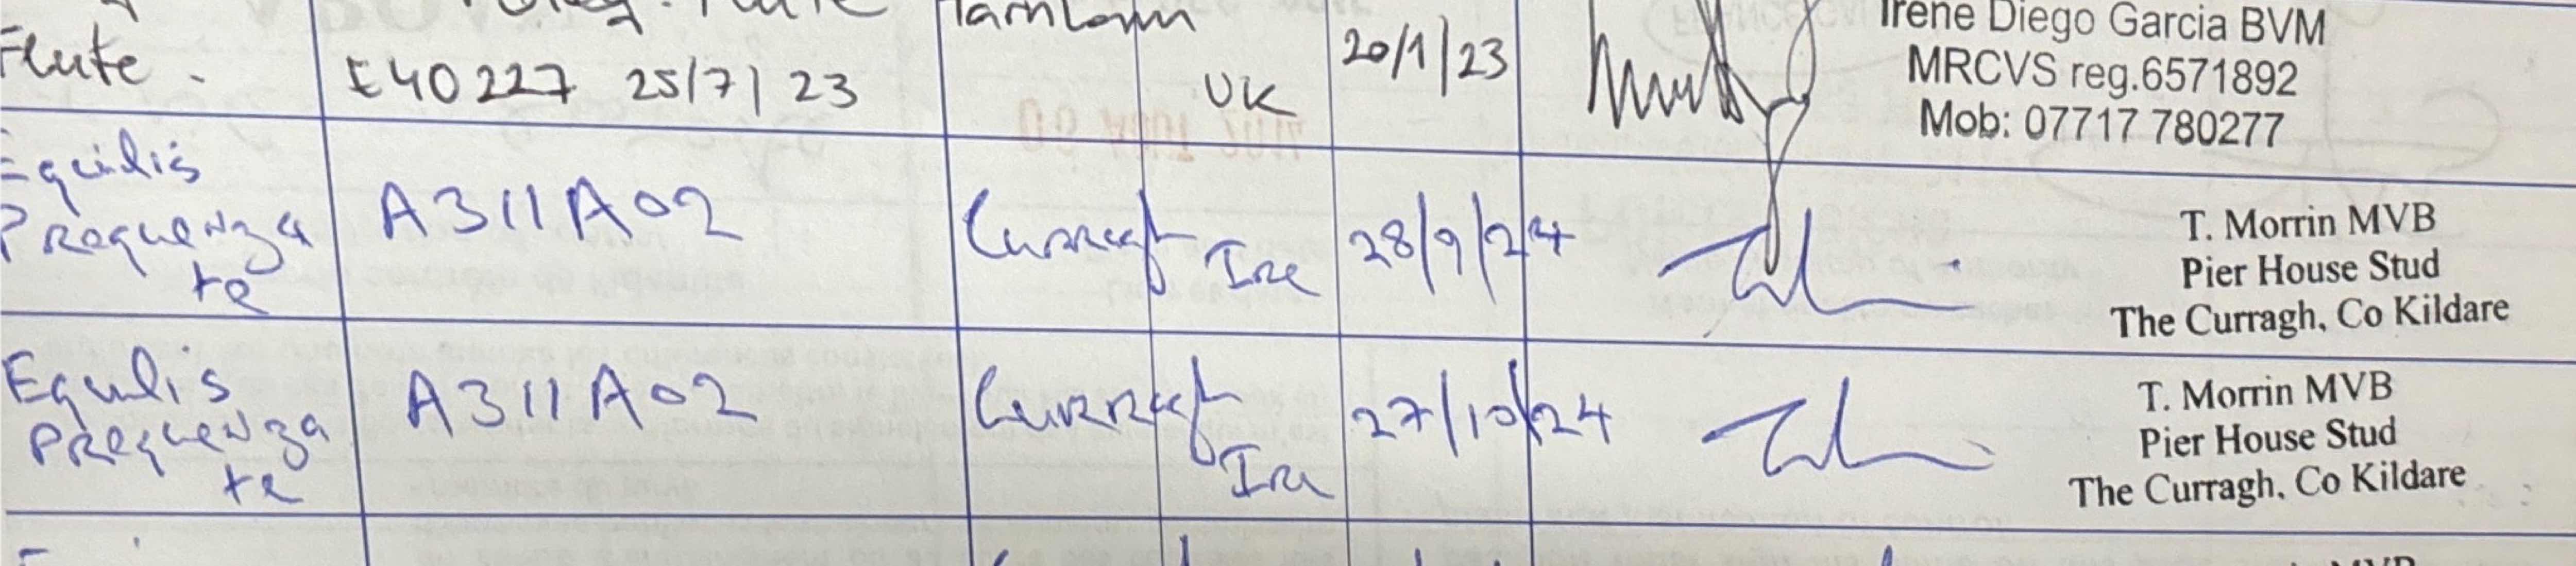 Flute.
E40227 25/7/23
UK
20/1/23
Irene Diego Garcia BVM
MRCVS reg.6571892
Mob: 07717 780277
Equilis
Prequenza
te
A311A02
Curragh
Ire
28/9/24
T. Morrin MVB
Pier House Stud
The Curragh, Co Kildare
Equilis
Prequenza
te
A311A02
Curragh
Ire
27/10/24
T. Morrin MVB
Pier House Stud
The Curragh, Co Kildare